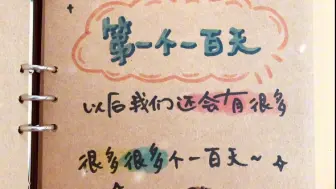 第一个一百天
以后我们还会有很多
很多很多个一百天~